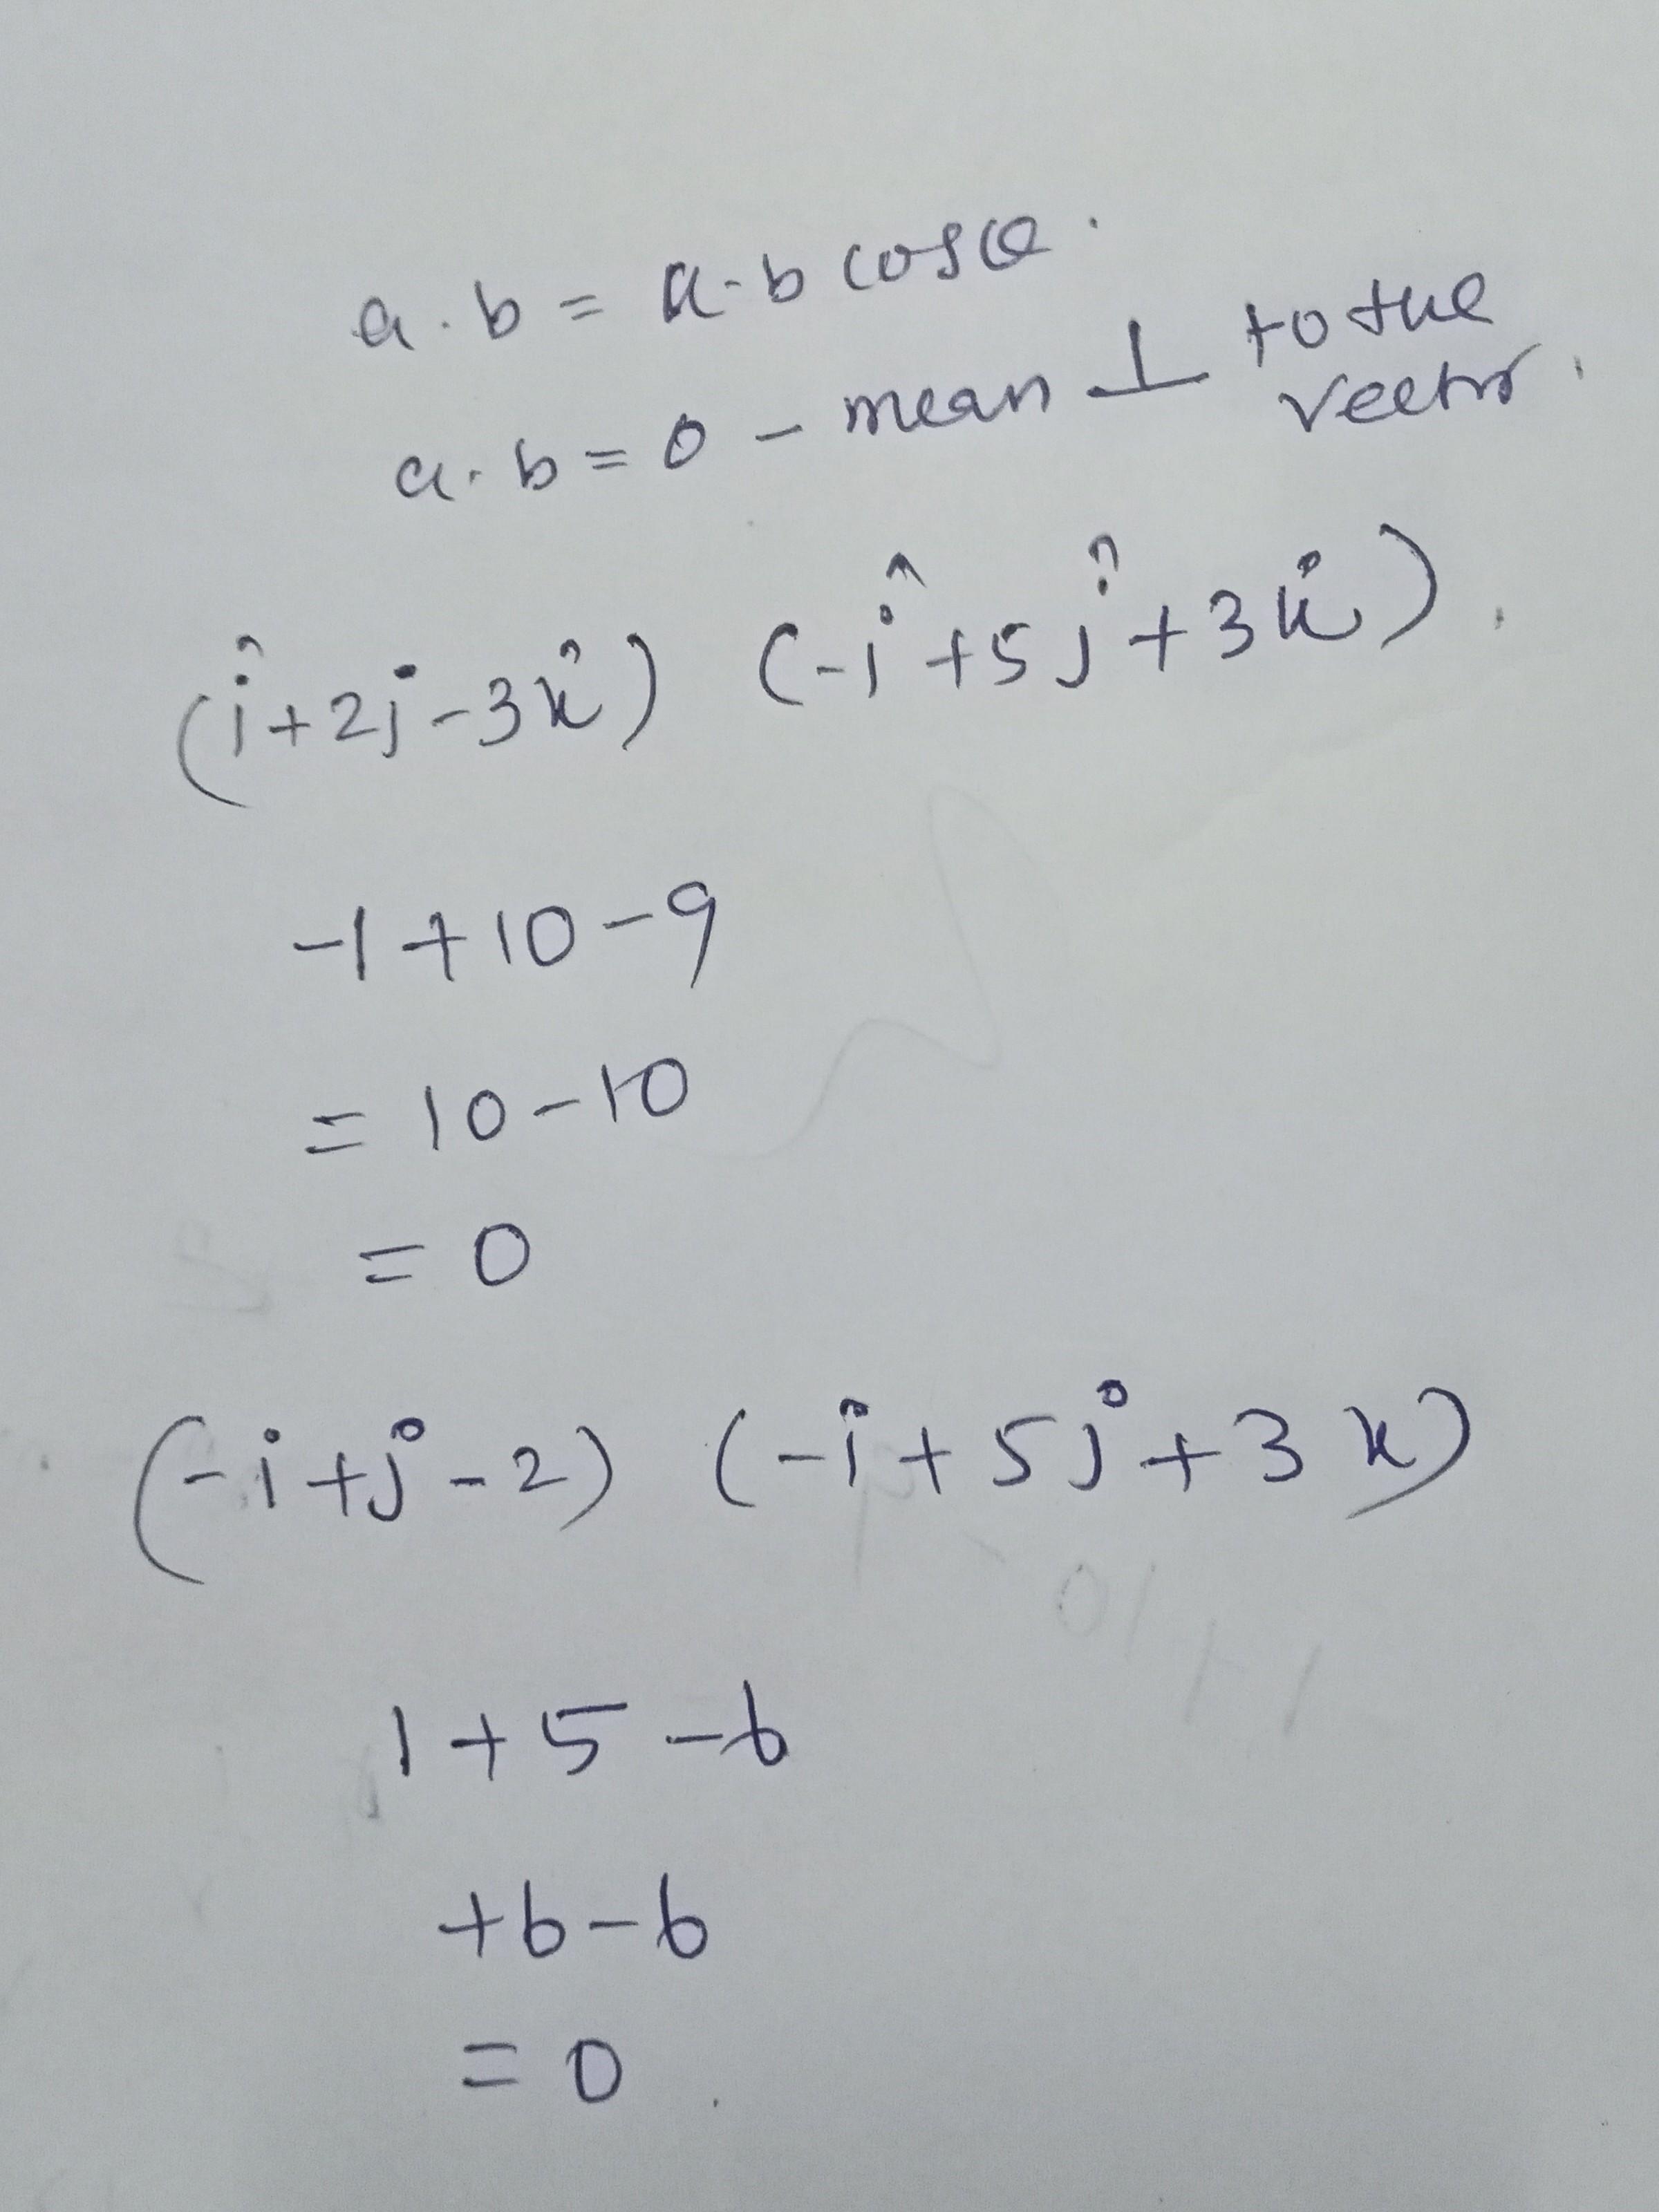 a.b = a-b cosθ.
a.b = 0 - mean ⊥ to the vector.
(î+2j-3k̂) (-î+5ĵ+3k̂).
-1+10-9
= 10-10
= 0
(-i+j-2) (-i+5j+3k)
1+5-6
+6-6
= 0.